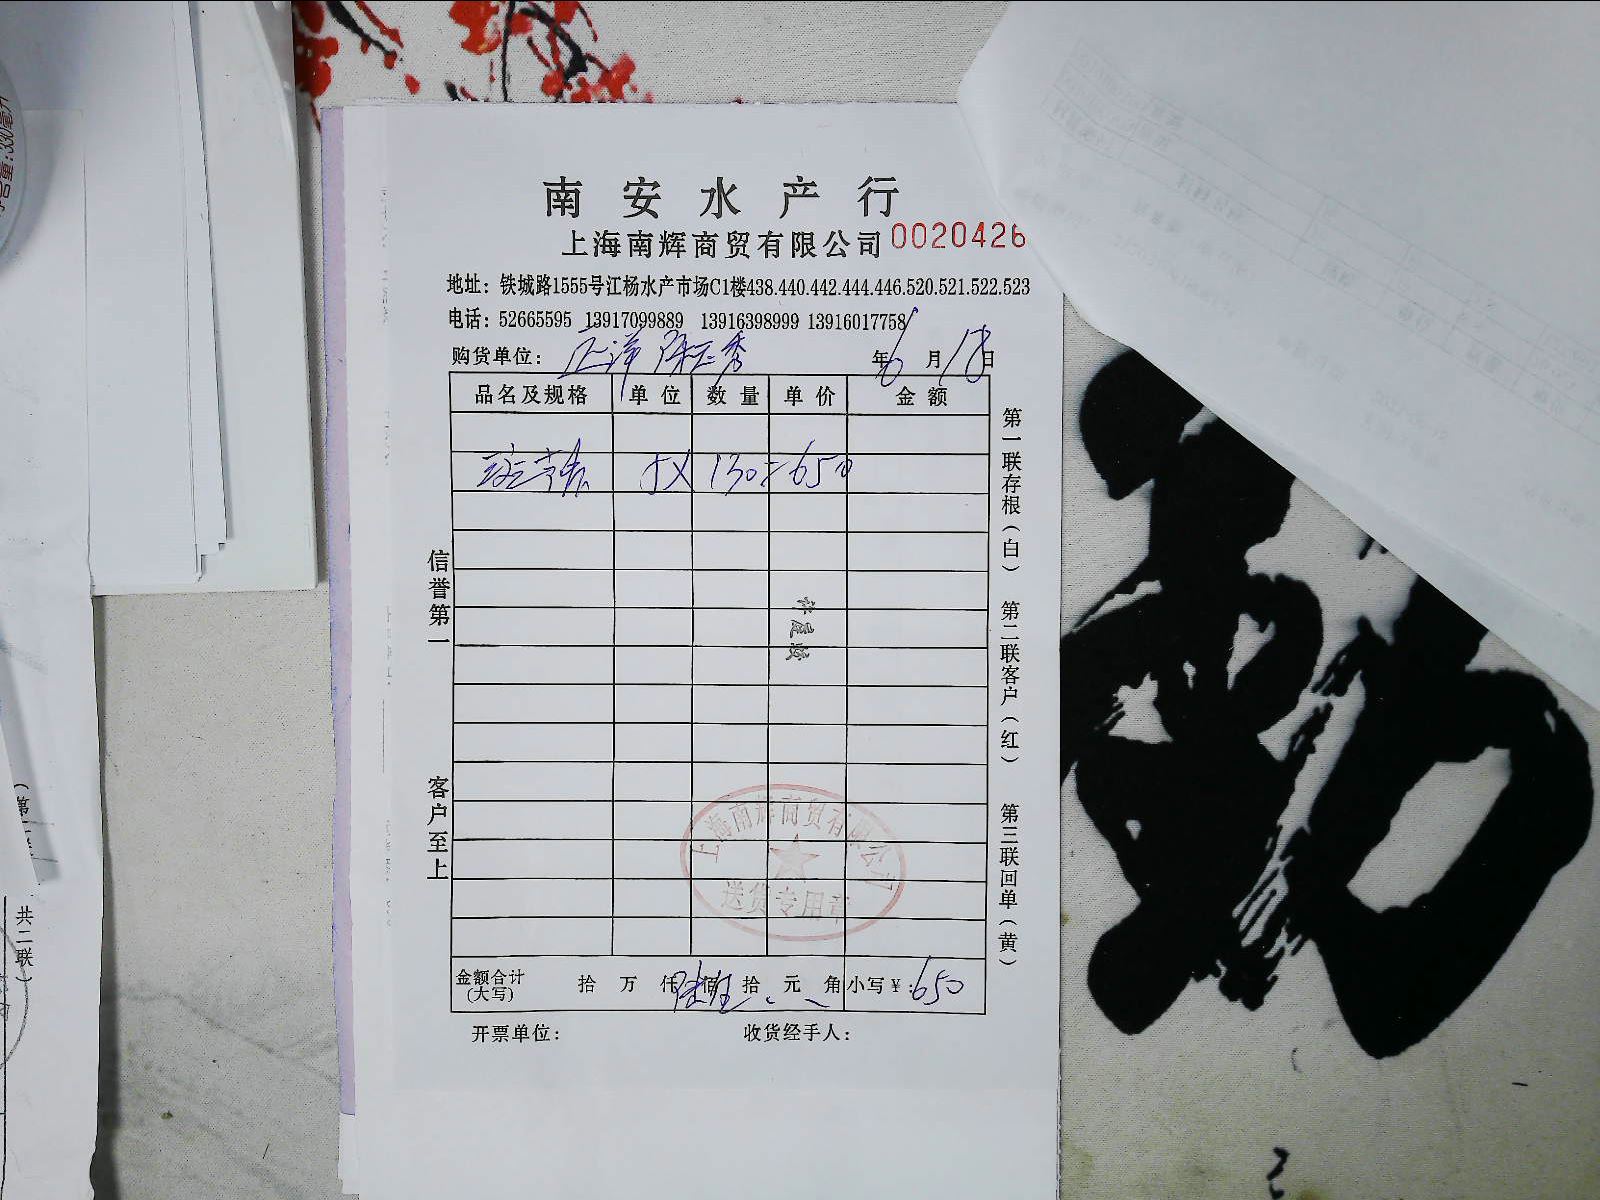 南安水产行
上海南辉商贸有限公司 0020426
地址：铁城路1555号江杨水产市场C1楼438.440.442.444.446.520.521.522.523
电话：52665595 13917099889 13916398999 13916017758
购货单位： 年6月18日
品名及规格 单位 数量 单价 金额
5X 130=650
信誉第一
客户至上
第一联存根（白） 第二联客户（红） 第三联回单（黄）
上海南辉商贸有限公司
送货专用章
金额合计（大写） 拾 万 仟 陆佰 拾 元 角 小写￥：650
开票单位： 收货经手人：
共二联）
330毫升